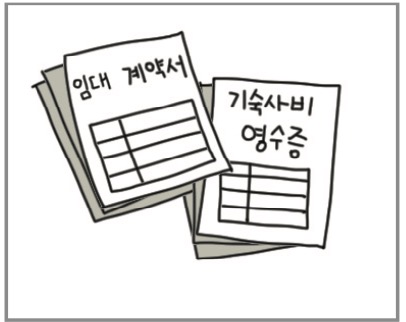 임대 계약서
기숙사비
영수증